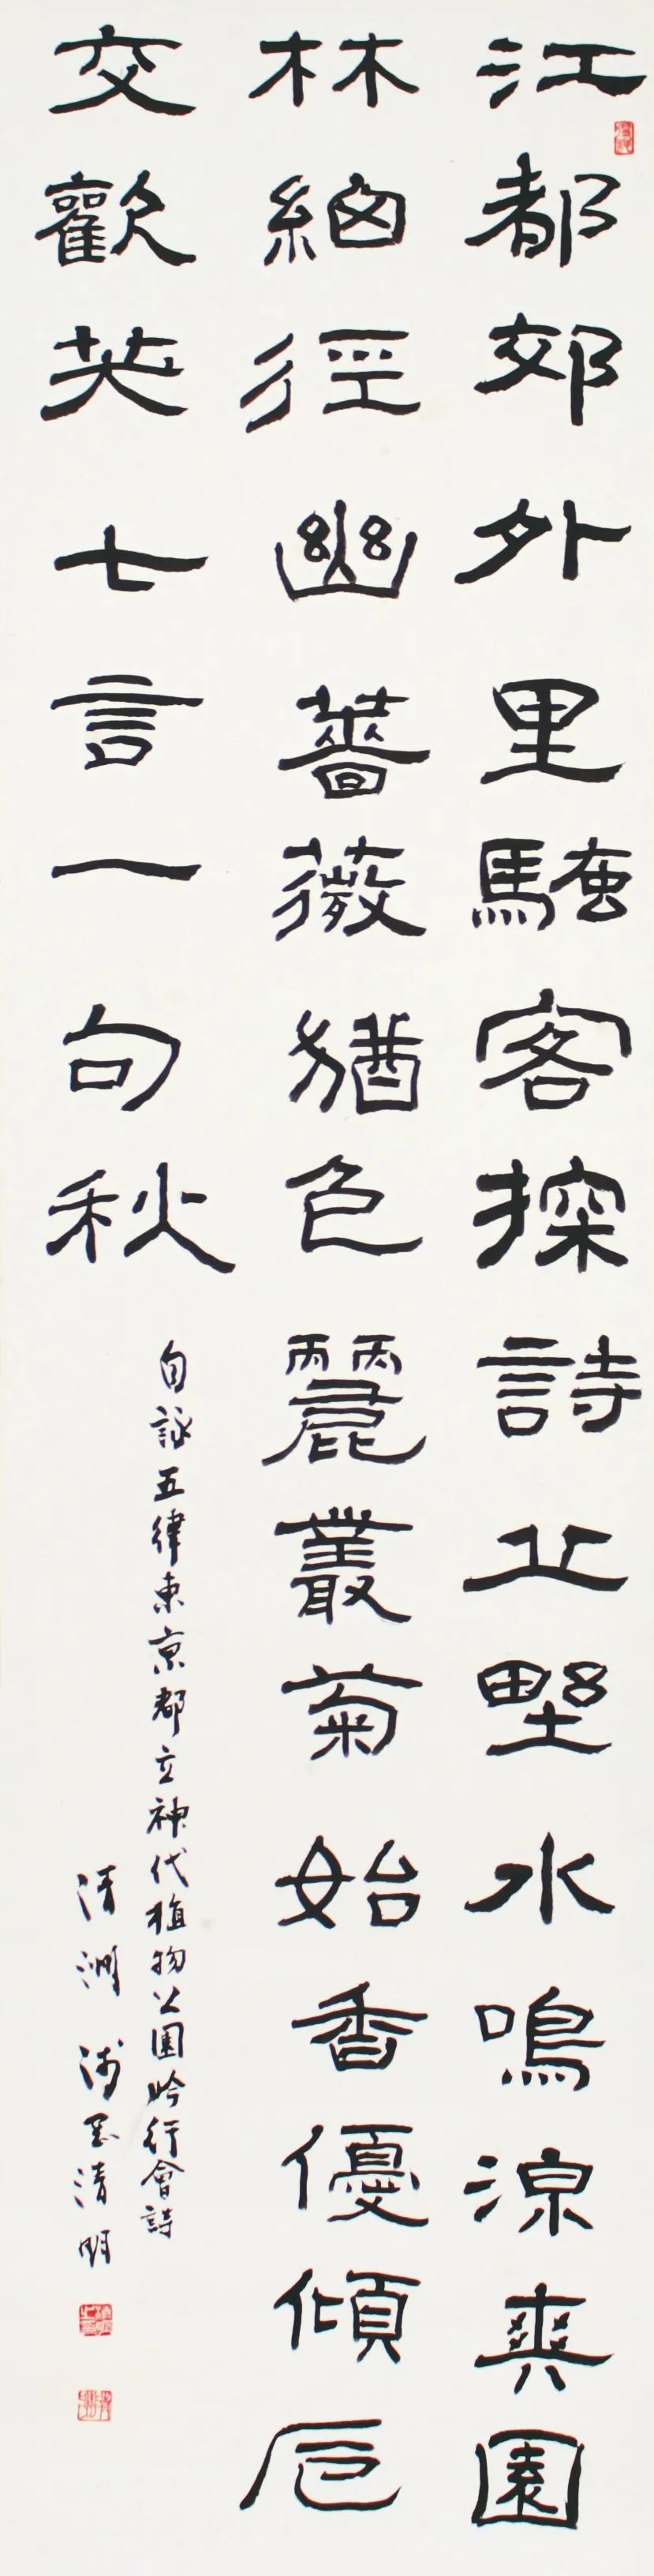 江都郊外里騷客探詩丘野水鳴涼爽園
林細徑幽薔薇猶色麗叢菊始香優傾卮
交歡笑七言一句秋
自詠五律東京都立神代植物公園吟行會詩
清洲 清明